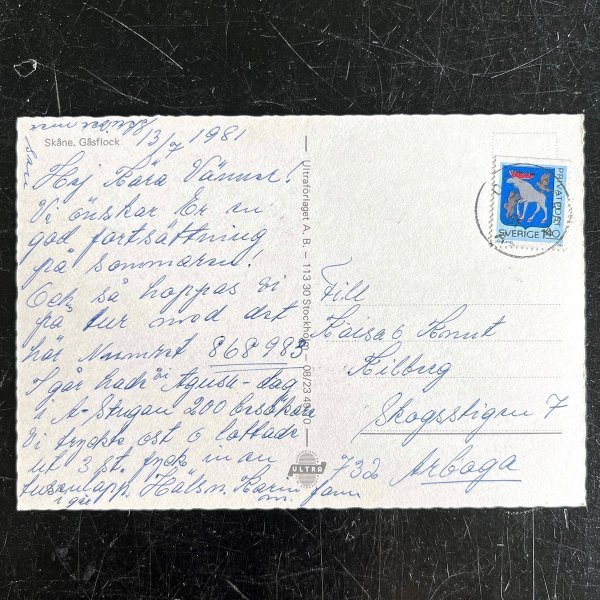 Skåne. Gåsflock
13/7 1981
Hej Kära Vänner!
Vi önskar Er en
god fortsättning
på sommaren!
Och så hoppas vi
på tur med det
här Numret 868983
I går hade vi Agusa-dag
i A-Stugan 200 besökare
Vi tryckte ost o lottade
ut 3 st. fick in en
tusenlapp. Hälsn. Karin
i går m. fam
Ultraförlaget A. B. – 113 30 Stockholm
ULTRA
PRIVATPOST
SVERIGE
Till
Kaisa o Knut
Kilbrg
Skogsstigen 7
732 Arboga